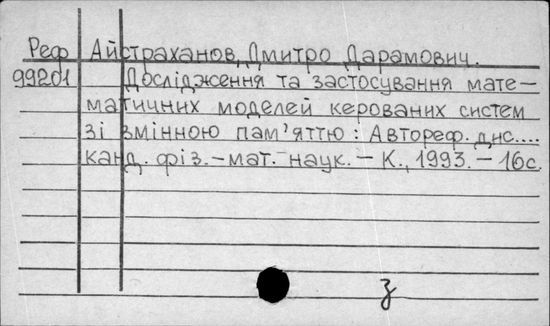 Реф Айстраханов, Дмитро Дарамович.
99201 Дослідження та застосування мате-
матичних моделей керованих систем
зі змінною пам'яттю: Автореф. дис....
канд. фіз.-мат. наук. - К., 1993. - 16с.
з